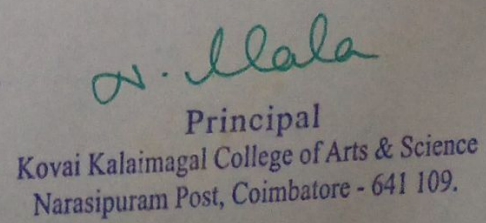 N. Mala
Principal
Kovai Kalaimagal College of Arts & Science
Narasipuram Post, Coimbatore - 641 109.